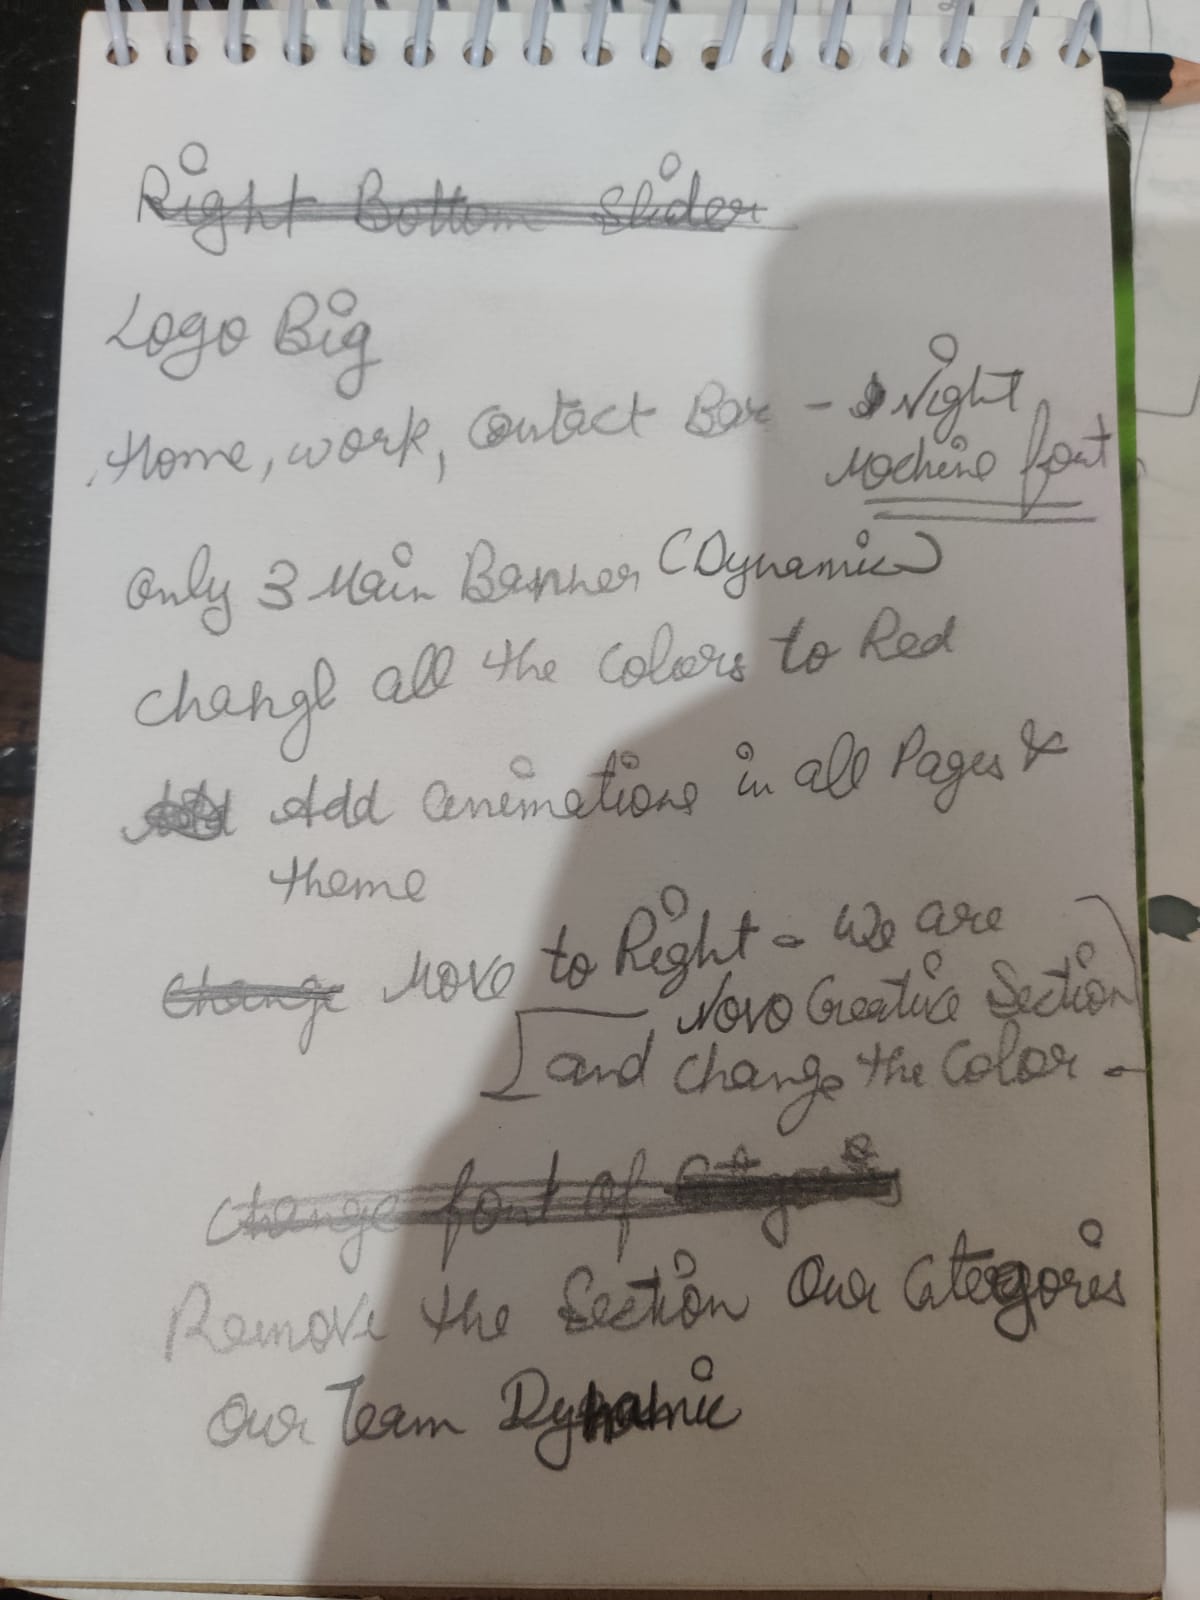 Right Bottom Slider
Logo Big
Home, work, Contact Bar - Night
Machine font
Only 3 Main Banner (Dynamic)
Change all the Colors to Red
Add Animations in all Pages &
theme
Change Move to Right - We are
Novo Creative Section
and change the Color -
Change font of
Remove the Section Our Categories
Our Team Dynamic